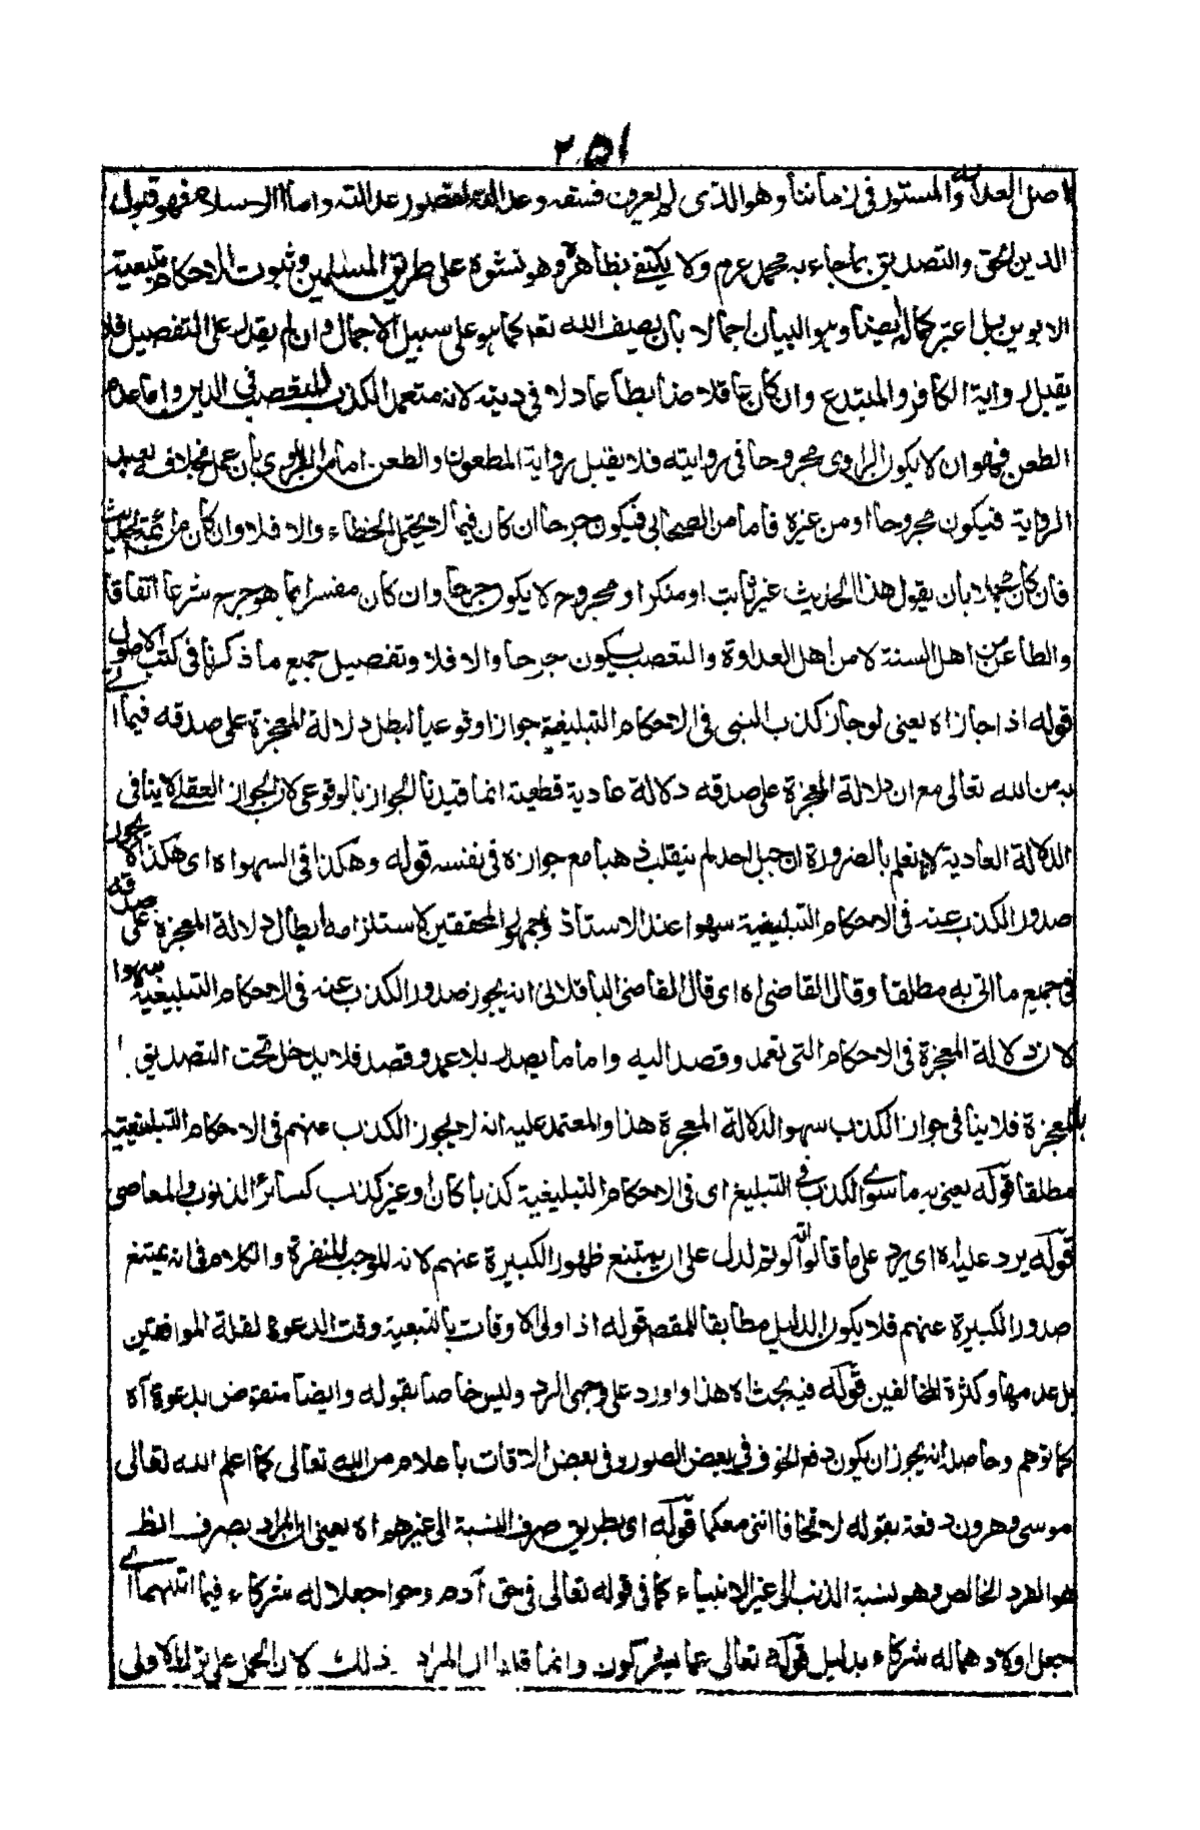 ٢٥١
اصل العدالة والمستور فى زماننا وهو الذى لم يعرف فسقه وعدالته لقصور عدالته واما الاسلام فهو قبول
الدين الحق والتصديق بما جاء به محمد عرم ولا يكتفى بظاهره وهو نشوه على طريق المسلمين وثبوت الاحكام بتبعية
الابوين بل اعتبر كماله ايضا وهو البيان اجمالا بان يصف الله تعه كما هو على سبيل الاجمال وان لم يقدر على التفصيل فلا
يقبل رواية الكافر والمبتدع وان كان عاقلا ضابطا عادلا فى دينه لانه متعمد الكذب للتعصب فى الدين واما عدم
الطعن فهو ان لا يكون الراوى مجروحا فى روايته فلا يقبل رواية المطعون والطعن اما من الراوى بان عمل بخلافه بعد
الرواية فيكون مجروحا او من غيره فاما من الصحابى فيكون جرحا ان كان فيما لا يحتمل الخطاء والا فلا وان كان من ائمة الحديث
فان كان مجملا بان يقول هذا الحديث غير ثابت او منكر او مجروح لا يكون جرحا وان كان مفسرا بما هو جرح شرعا اتفاقا
والطاعن من اهل السنة لا من اهل العداوة والتعصب يكون جرحا والا فلا وتفصيل جميع ما ذكرنا فى كتب الاصول
قوله اذا جاز اه يعنى لو جاز كذب النبى فى الاحكام التبليغية جوازا وقوعيا لبطل دلالة المعجزة على صدقه فيما اتى
به من الله تعالى مع ان دلالة المعجزة على صدقه دلالة عادية قطعية انما قيدنا الجواز بالوقوعى لان الجواز العقلى لا ينافى
الدلالة العادية لانا نعلم بالضرورة ان جبل احد لم ينقلب ذهبا مع جوازه فى نفسه قوله وهكذا فى السهو اه اى هكذا لا يجوز
صدور الكذب عنه فى الاحكام التبليغية سهوا عند الاستاذ وجمهور المحققين لاستلزامه ابطال دلالة المعجزة على صدقه
فى جميع ما اتى به مطلقا وقال القاضى اه اى قال القاضى الباقلانى انه يجوز صدور الكذب عنه فى الاحكام التبليغية سهوا
لان دلالة المعجزة فى الاحكام التى تعمد وقصد اليه واما ما يصدر بلا عمد وقصد فلا يدخل تحت التصديق
بالمعجزة فلا ينافى جواز الكذب سهوا لدلالة المعجزة هذا والمعتمد عليه انه لا يجوز الكذب عنهم فى الاحكام التبليغية
مطلقا قوله يعنى به ما سوى الكذب فى التبليغ اى فى الاحكام التبليغية كذبا كان او غير كذب كسائر الذنوب والمعاصى
قوله يرد عليه اه اى يرد على ما قالوا انه لو تم لدل على ان يمتنع ظهور الكبيرة عنهم لانه الموجب للنفرة والكلام فى انه يمتنع
صدور الكبيرة عنهم فلا يكون الدليل مطابقا للمقصه قوله اذ اولى الاوقات بالتبعية وقت الدعوة لقلة الموافقين
بل عدمها وكثرة المخالفين قوله فيه بحث اه هذا وارد على وجهى الرد وليس خاصا بقوله وايضا منقوض بدعوة آه
كما توهم وحاصله انه يجوز ان يكون دفع الخوف فى بعض الصور وفى بعض الاوقات باعلام من الله تعالى كما اعلم الله تعالى
موسى وهرون دفعة بقوله لا تخافا اننى معكما قوله اى بطريق صرف النسبة الى غيرهم اه يعنى ان المراد بصرف الظ
هو الفرد الخالص وهو نسبة الذنب الى غير الانبياء كما فى قوله تعالى فى حق آدم وحوا جعلا له شركاء فيما اتيهما اى
جعل اولادهما له شركاء بدليل قوله تعالى عما يشركون وانما قلنا ان المراد ذلك لان الحمل على ترك الاولى